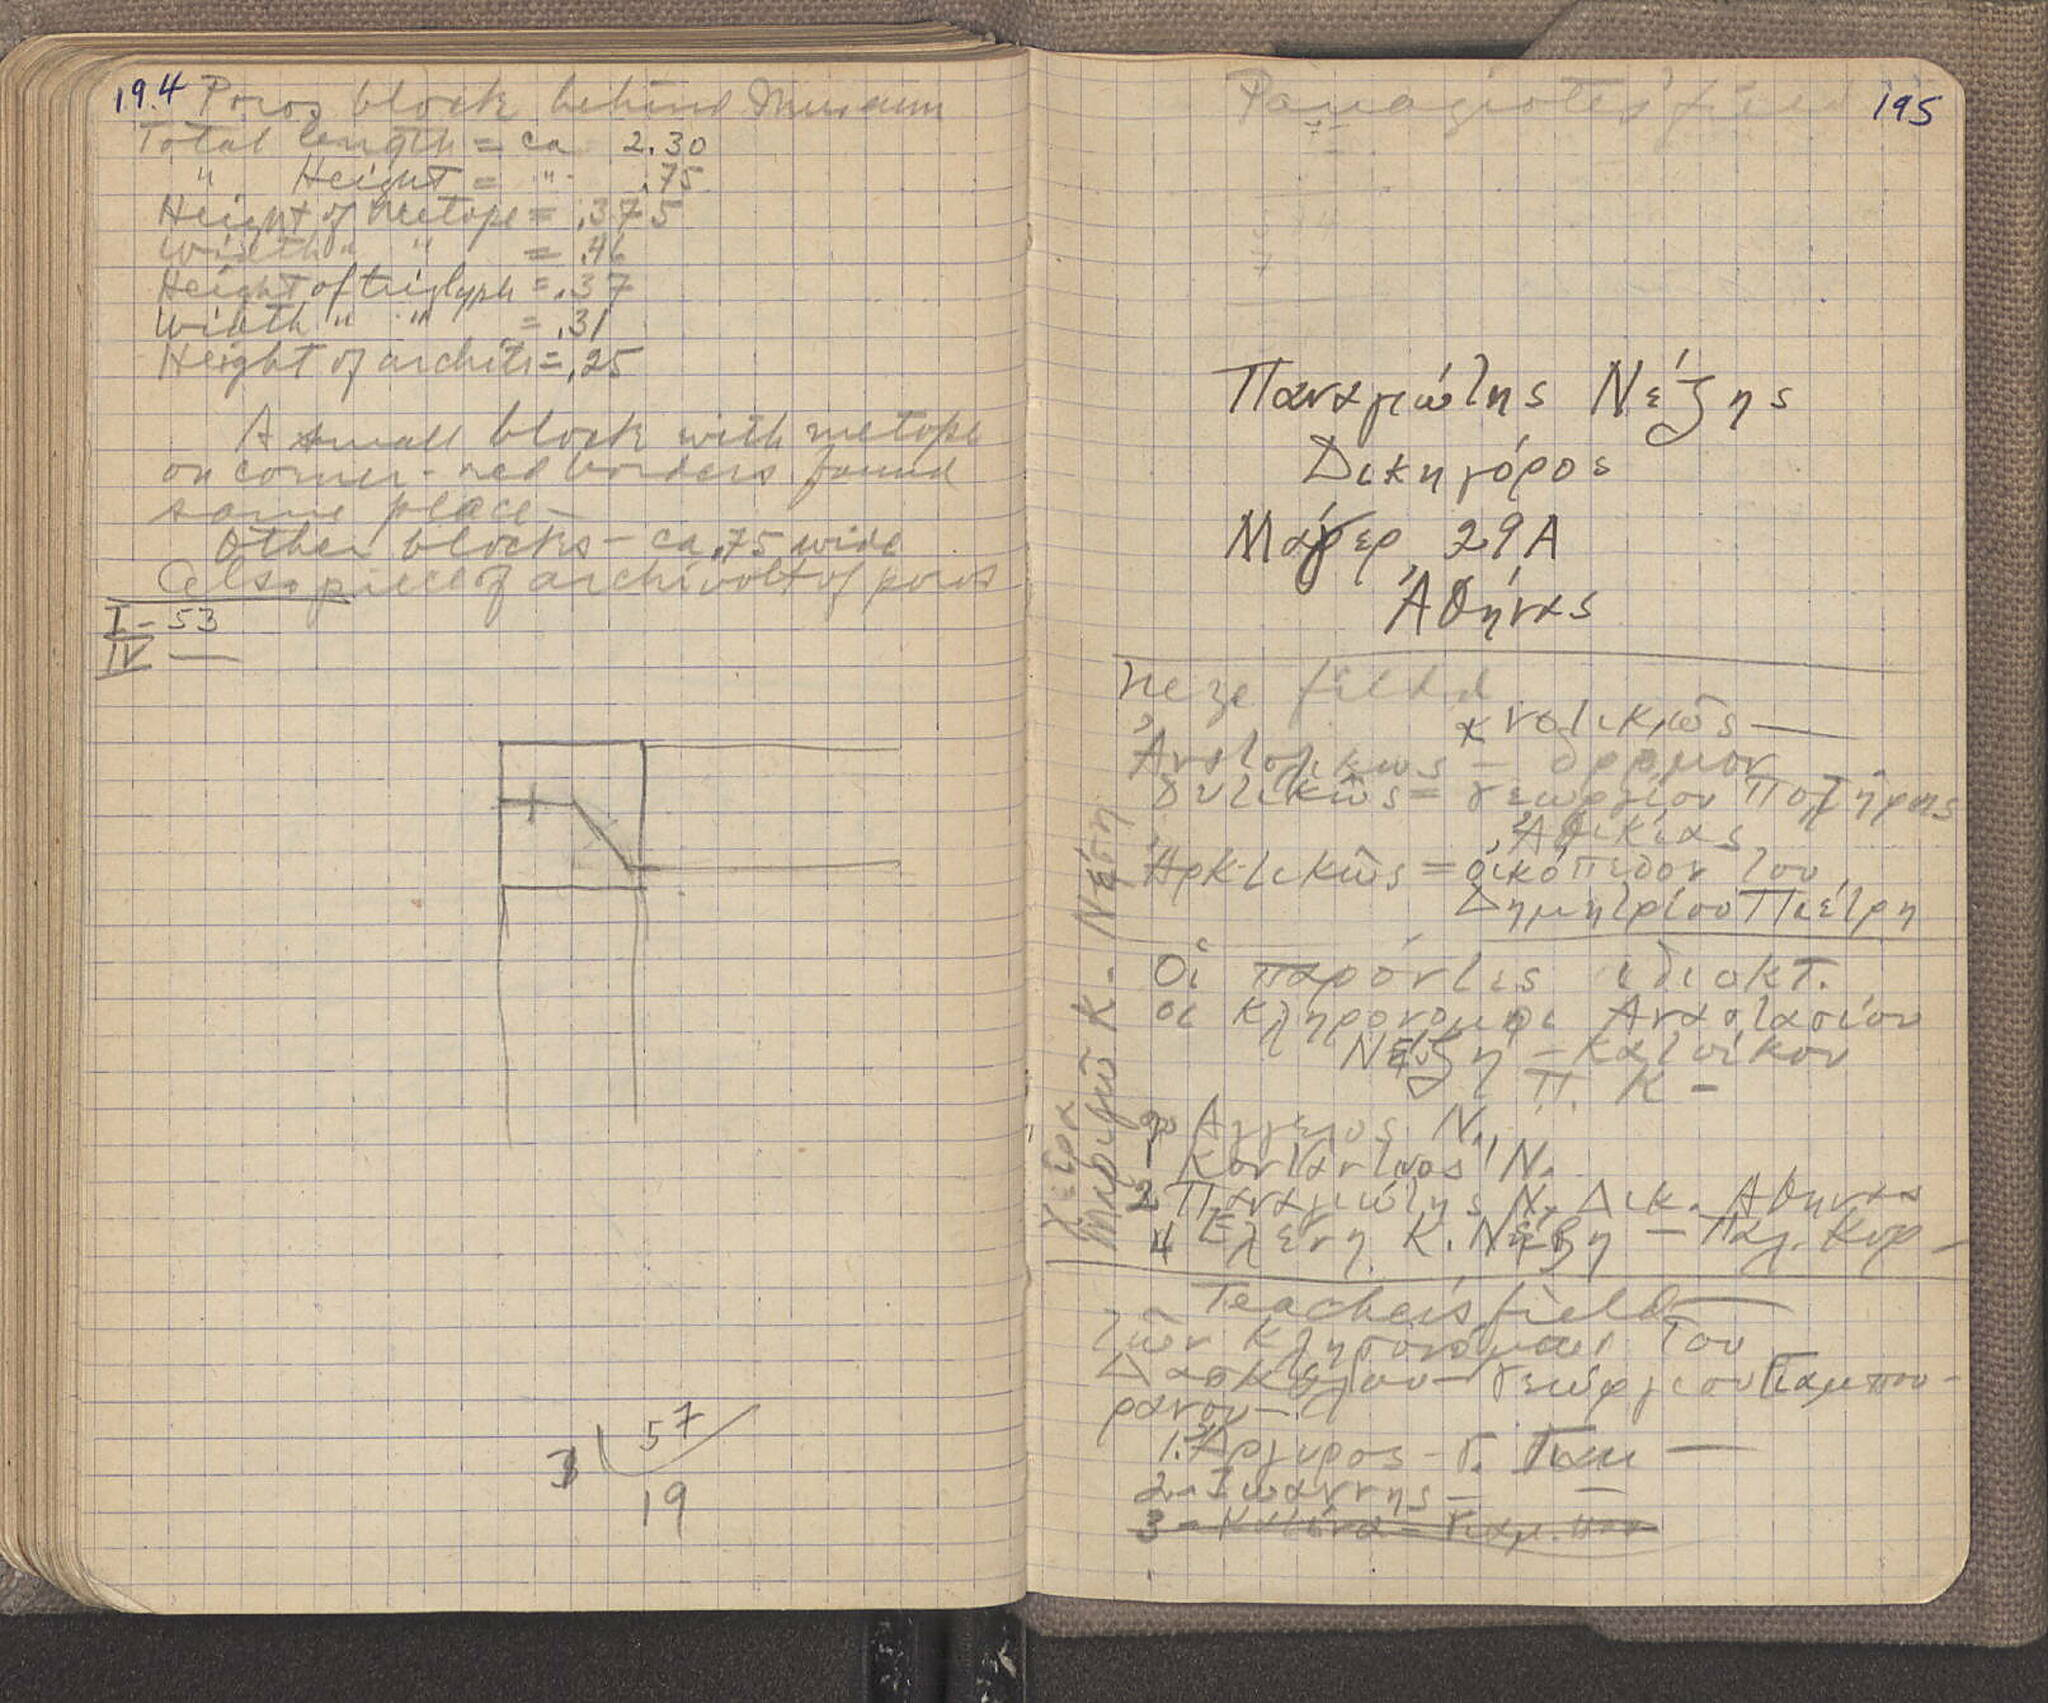 194 Poros block behind Museum
Total length = ca 2.30
" Height = " .75
Height of metope = .375
Width " " = .46
Height of triglyph = .37
Width " " = .31
Height of archit. = .25
A small block with metope
on corner - red borders found
same place -
Other blocks - ca .75 wide
Also piece of archivolt of poros
I - 53
IV —
3 57
19
195
Panagiotes' field
Παναγιώτης Νέζης
Δικηγόρος
Μάγερ 29Α
Ἀθήνας
Neze field
Ἀνατολικως = δρόμον
Δυτικῶς = γεωργίου
Ἀθικίας
Ἀρκτικῶς = οἰκόπεδον του
Δημητρίου Πιέτρη
Οἱ παρόντες ιδιοκτ.
οι κληρονομοι Αναστασίου
Νέζη - κατοίκου
Π. Κ -
Αγγελος Ν.
Κονταντινος Ν.
2 Παναγιώτης Ν. Δικ. Αθηνας
4 Ελένη Κ. Νέζη - Παλ. Κορ -
χείρα
Μαριγῶ Κ. Νέζη
Teacher's field
τῶν Κληρονόμων του
Δασκάλου - Γεώργιου Γιαμπου-
ράνου -
1. Ἀργυρος - Γ. Γιαμ —
2 - Ιωάννης — —
3 -